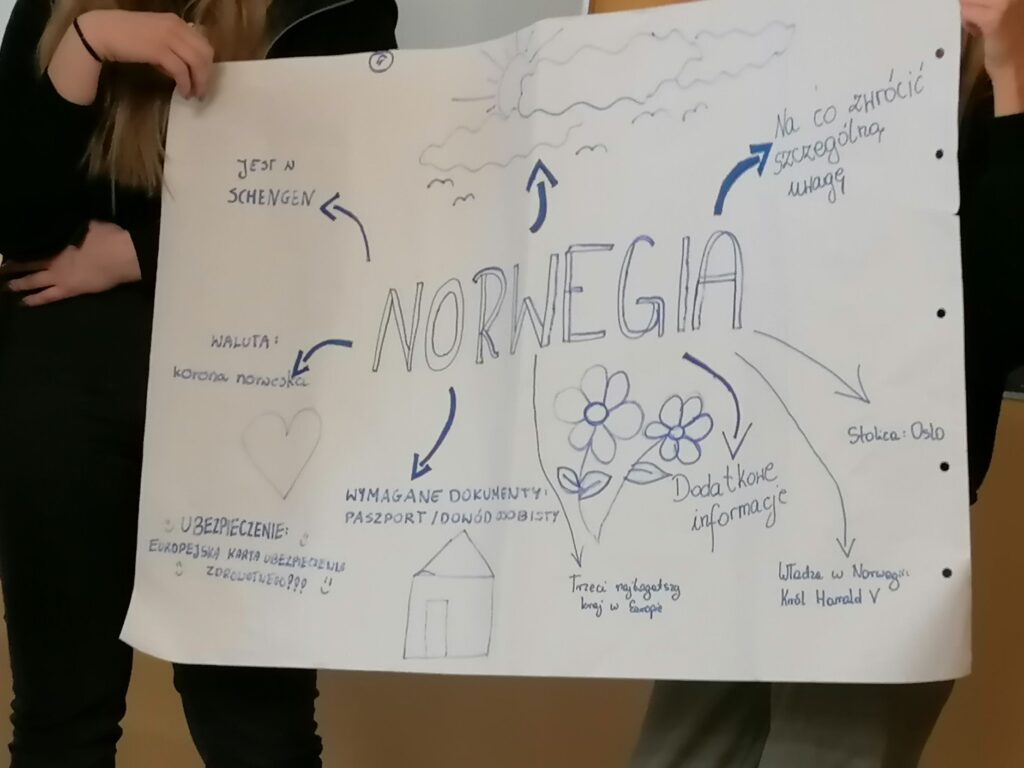 Na co zwrócić
szczególną
uwagę
JEST W
SCHENGEN
NORWEGIA
WALUTA:
korona norweska
Stolica: Oslo
WYMAGANE DOKUMENTY:
PASZPORT / DOWÓD OSOBISTY
Dodatkowe
informacje
UBEZPIECZENIE:
EUROPEJSKA KARTA UBEZPIECZENIA
ZDROWOTNEGO???
Trzeci najbogatszy
kraj w Europie
Władza w Norwegii:
Król Harrald V